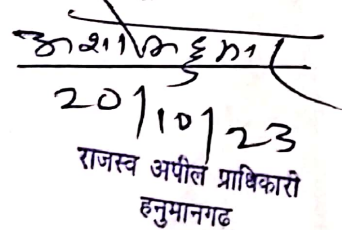 अशोक कुमार
20/10/23
राजस्व अपील प्राधिकारी
हनुमानगढ